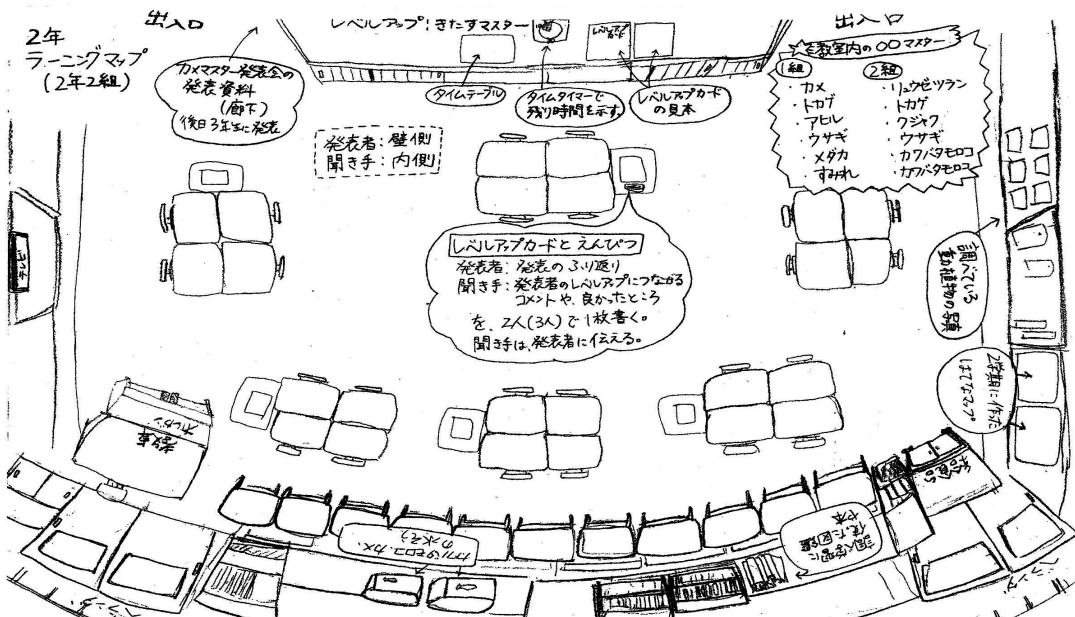 2年
ラーニングマップ
(2年2組)
出入口
レベルアップ!きたすマスター
出入口
カメマスター発表会の
発表資料
(廊下)
後日3年生に発表
タイムテーブル
タイムタイマーで
残り時間を示す。
レベルアップカード
の見本
発表者:壁側
聞き手:内側
各教室内の〇〇マスター
1組
・カメ
・トカゲ
・アヒル
・ウサギ
・メダカ
・すみれ
2組
・リュウゼツラン
・トカゲ
・クジャク
・ウサギ
・カワバタモロコ
・カワバタモロコ
レベルアップカードと えんぴつ
発表者:発表のふり返り
聞き手:発表者のレベルアップにつながる
コメントや、良かったところ
を、2人(3人)で1枚書く。
聞き手は、発表者に伝える。
調べている
動植物の写真
2学期に作った
はてなマップ
オルガン
カワバタモロコ、カメ、
の水そう
調べ学習に
使った図鑑
や本
ベランダ
ベランダ